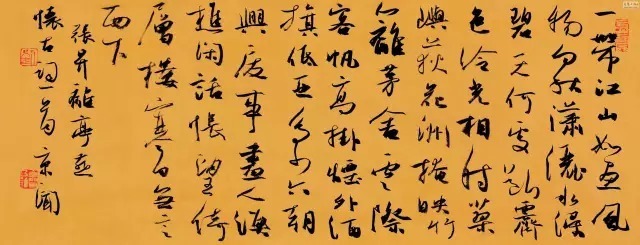 一帶江山如畫風
物向秋瀟灑水浸
碧天何處斷霽
色冷光相射蓼
嶼荻花洲掩映竹
籬茅舍雲際
客帆高掛煙外酒
旗低亞多少六朝
興廢事盡入漁
樵閑話悵望倚
層樓寒日無言
西下
張昇離亭燕
懷古詞一首京聞